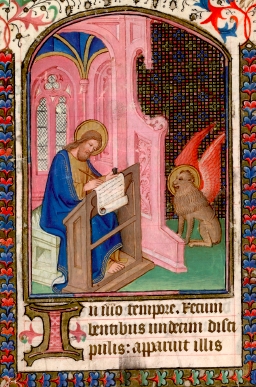 In illo tempore. Recum
bentibus undecim disci
pulis: apparuit illis